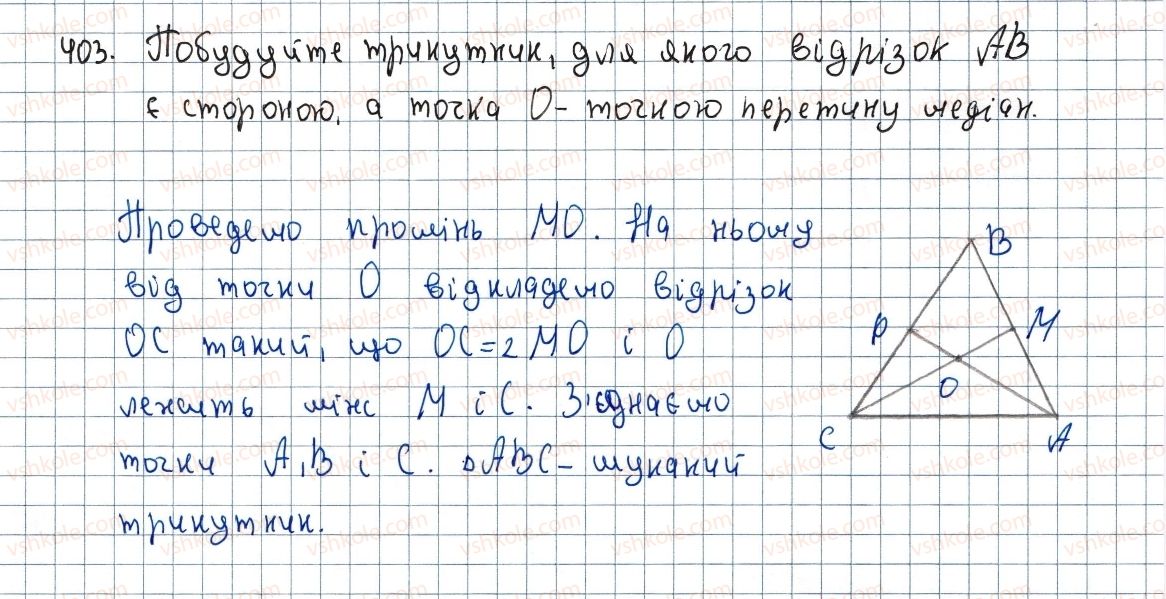 403. Побудуйте трикутник, для якого відрізок AB
є стороною, а точка O- точкою перетину медіан.
Проведемо промінь MO. На ньому
від точки O відкладемо відрізок
OC такий, що OC=2MO і O
лежить між M і C. З'єднаємо
точки A,B і C. ΔABC- шуканий
трикутник.
B
P
M
O
C
A
vshkole.com